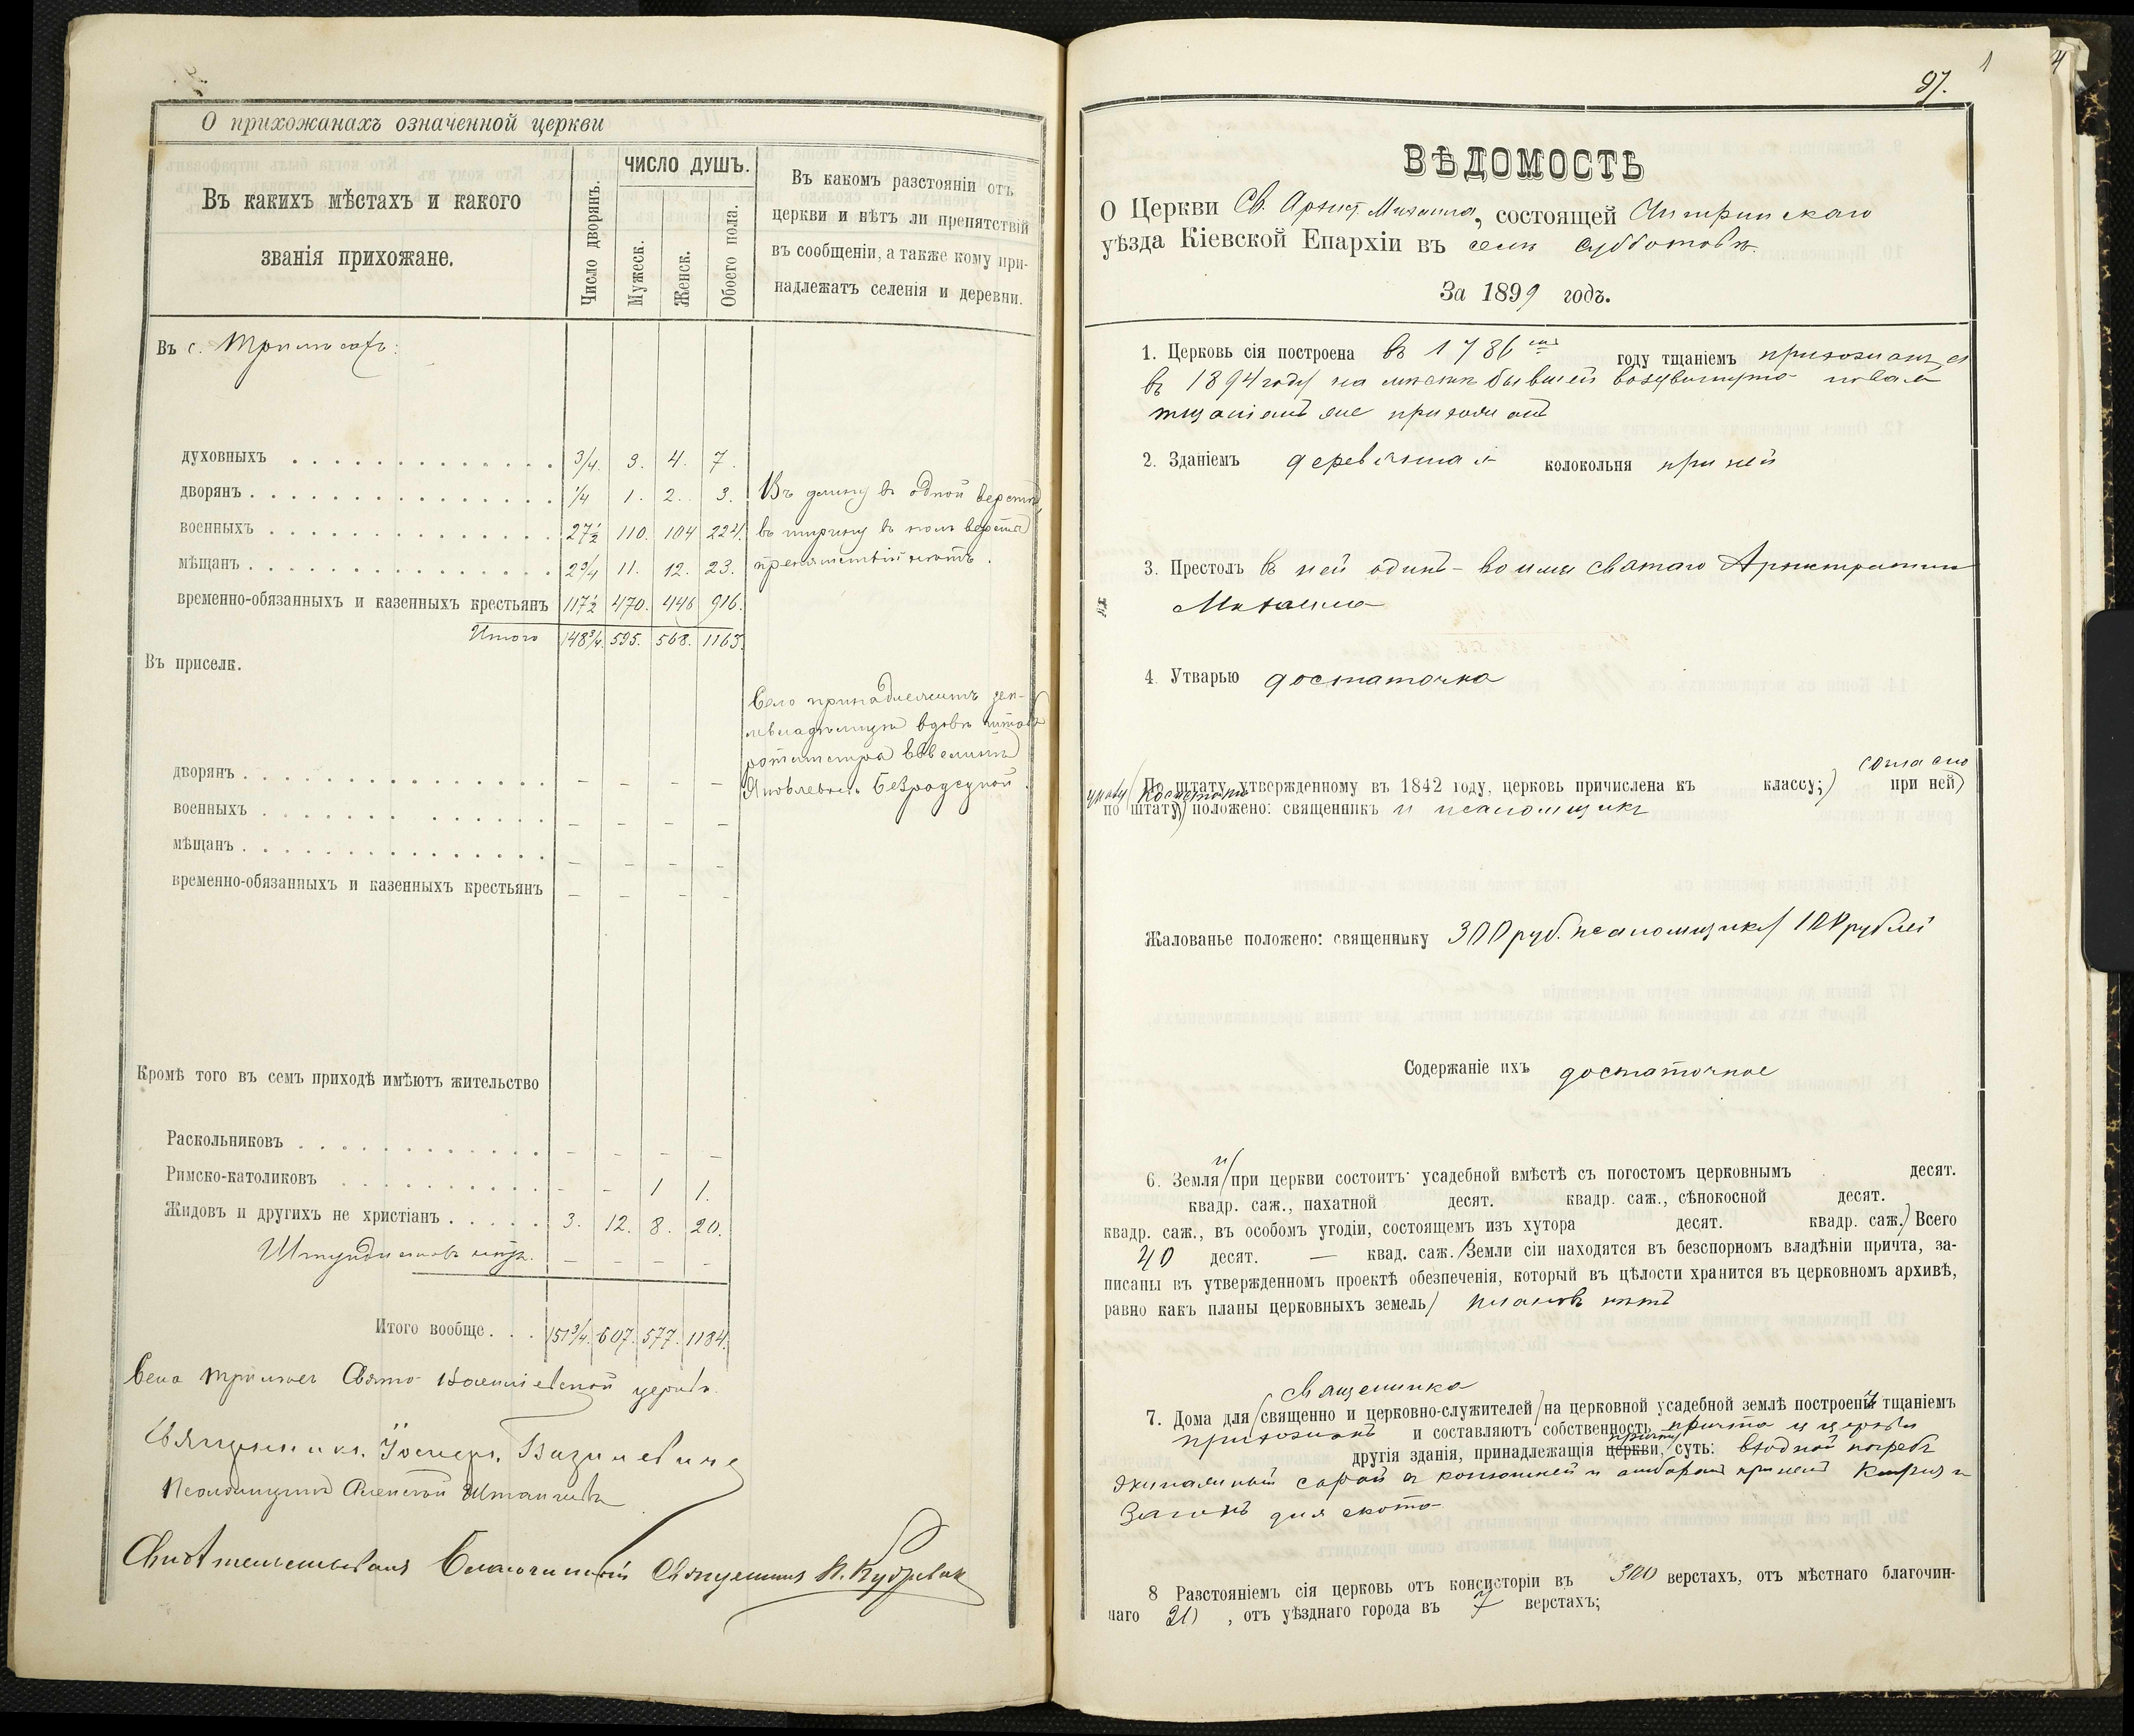 О прихожанахъ означенной церкви
Въ какихъ мѣстахъ и какого
званія прихожане.
Число дворянъ.
ЧИСЛО ДУШЪ.
Мужеск.
Женск.
Обоего пола.
Въ какомъ разстояніи отъ
церкви и нѣтъ ли препятствій
въ сообщеніи, а также кому при-
надлежатъ селенія и деревни.
Въ с.
духовныхъ 3/4. 3. 4. 7.
дворянъ 1/4 1. 2. 3.
военныхъ 27½ 110. 104 224.
мѣщанъ 2¾ 11. 12. 23.
временно-обязанныхъ и казенныхъ крестьянъ 117½ 470. 446 916.
Итого 148¾. 595. 568. 1163.
Въ длину въ одной верстѣ,
въ ширину въ полъ версты
препятствій нѣтъ.
Въ приселк.
Село принадлежитъ зем-
левладѣлицѣ вдовѣ штабъ
ротмистра Евелинѣ
Яковлевнѣ Безрадецкой.
дворянъ – – – –
военныхъ – – – –
мѣщанъ – – – –
временно-обязанныхъ и казенныхъ крестьянъ – – – –
Кромѣ того въ семъ приходѣ имѣютъ жительство
Раскольниковъ – – – –
Римско-католиковъ – – 1 1.
Жидовъ и другихъ не христіанъ 3. 12. 8. 20.
Штундистовъ нѣтъ. – – – –
Итого вообще 151¾. 607. 577. 1184.
Села Свято церкви
Священникъ Іосифъ Базилевичъ
Псаломщикъ Алексій
Свидѣтельствовалъ Благочинный Священникъ
97.
1
ВѢДОМОСТЬ
О Церкви Св. Архист. Михаила, состоящей Чигринскаго
уѣзда Кіевской Епархіи въ селѣ Субботовѣ.
За 1899 годъ.
1. Церковь сія построена въ 1786 году тщаніемъ прихожанъ а
въ 1894 году на мѣстѣ бывшей воздвигнута новая
тщаніемъ же прихожанъ
2. Зданіемъ деревянная колокольня при ней
3. Престолъ въ ней одинъ – во имя Святаго Архистратига
Михаила
4. Утварью достаточна
согласно
По штату, утвержденному въ 1842 году, церковь причислена къ классу;) при ней)
по штату) положено: священникъ и псаломщикъ
Жалованье положено: священнику 300 руб. псаломщику 100 рублей
Содержаніе ихъ достаточное
6. Земля при церкви состоитъ: усадебной вмѣстѣ съ погостомъ церковнымъ десят.
квадр. саж., пахатной десят. квадр. саж., сѣнокосной десят.
квадр. саж., въ особомъ угодіи, состоящемъ изъ хутора десят. квадр. саж.) Всего
40 десят. — квад. саж. Земли сіи находятся въ безспорномъ владѣніи причта, за-
писаны въ утвержденномъ проектѣ обезпеченія, который въ цѣлости хранится въ церковномъ архивѣ,
равно какъ планы церковныхъ земель) плановъ нѣтъ
Священника
7. Дома для (священно и церковно-служителей) на церковной усадебной землѣ построены тщаніемъ
прихожанъ и составляютъ собственность причта и церкви
другія зданія, принадлежащія церкви, причту суть: входной погребъ
сарай съ конюшней и амбаромъ при немъ и
Загонъ для скота
8 Разстояніемъ сія церковь отъ консисторіи въ 300 верстахъ, отъ мѣстнаго благочин-
наго 20, отъ уѣзднаго города въ 7 верстахъ;